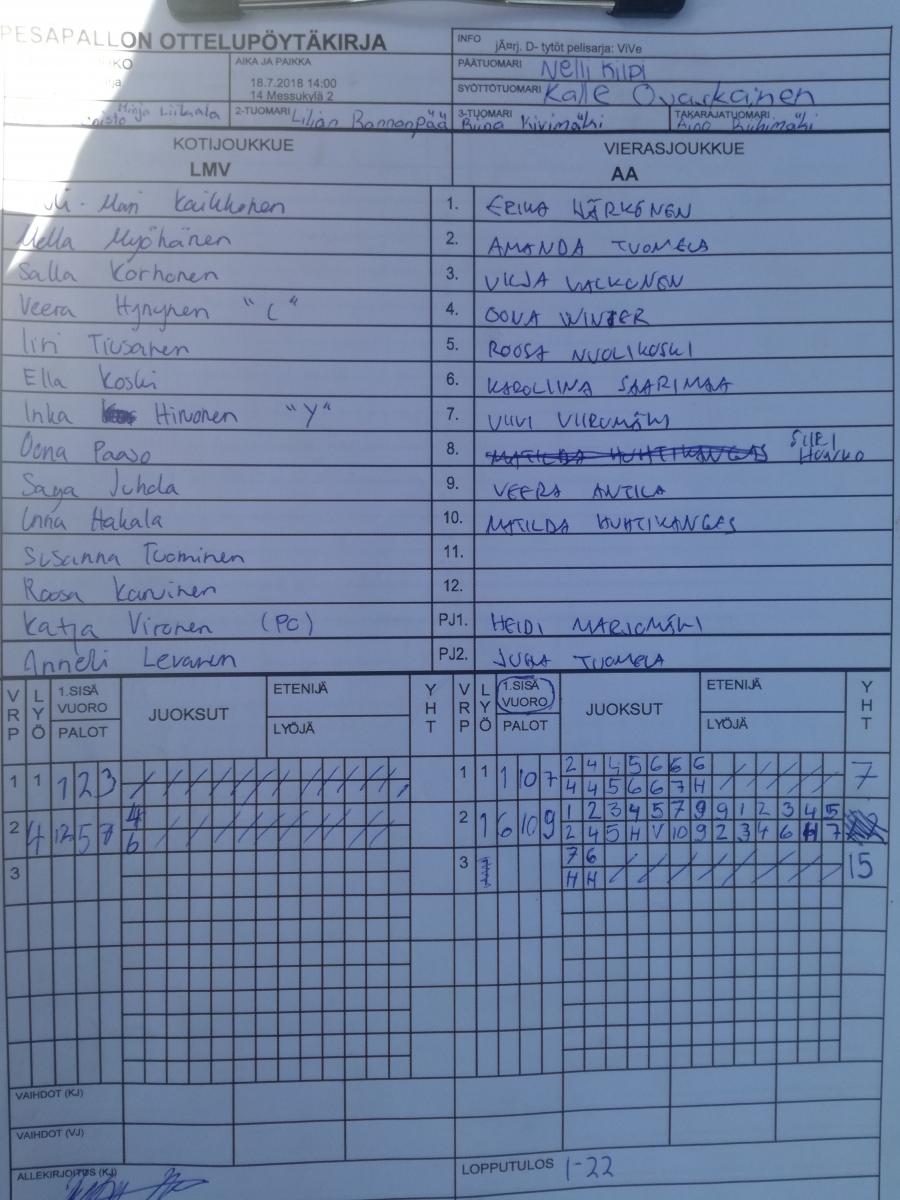 PESÄPALLON OTTELUPÖYTÄKIRJA
INFO
jÃ¤rj. D- tytöt pelisarja: ViVe
AIKA JA PAIKKA
18.7.2018 14:00
14 Messukylä 2
PÄÄTUOMARI Nelli Kilpi
SYÖTTÖTUOMARI Kalle Ovaskainen
Minja Liikaala
2-TUOMARI Lilian Rannanpää
3-TUOMARI Riina Kivimäki
TAKARAJATUOMARI
KOTIJOUKKUE
LMV
VIERASJOUKKUE
AA
Mari Kaikkonen 1. ERIKA HÄRKÖNEN
Mella Myöhänen 2. AMANDA TUOMELA
Salla Korhonen 3. VILJA VALKONEN
Veera Hynynen "C" 4. OONA WINTER
Iiri Tiusanen 5. ROOSA NUOLIKOSKI
Ella Koski 6. KAROLIINA SAARIMAA
Inka Hirvonen "Y" 7. VIIVI VIIRUMÄKI
Oona Paaso 8. MATILDA HUHTIKANGAS SIIRI
Saga Juhola 9. VEERA ANTILA
Unna Hakala 10. MATILDA HUHTIKANGAS
Susanna Tuominen 11.
Roosa Karvinen 12.
Katja Vironen (PC) PJ1. HEIDI MARJOMÄKI
Anneli Levanen PJ2. JUHA TUOMELA
VRP LYÖ 1.SISÄ VUORO PALOT JUOKSUT ETENIJÄ LYÖJÄ YHT VRP LYÖ 1.SISÄ VUORO PALOT JUOKSUT ETENIJÄ LYÖJÄ YHT
1 1 1 2 3 1 1 1 10 7 2 4 4 5 6 6 6 7
4 4 5 6 6 7 H
2 4 12 5 7 4 2 1 6 10 9 1 2 3 4 5 7 9 9 1 2 3 4 5
6 2 4 5 H V 10 9 2 3 4 6 H 7
3 3 7 6 15
H H
VAIHDOT (KJ)
VAIHDOT (VJ)
ALLEKIRJOITUS (KJ)
LOPPUTULOS 1-22